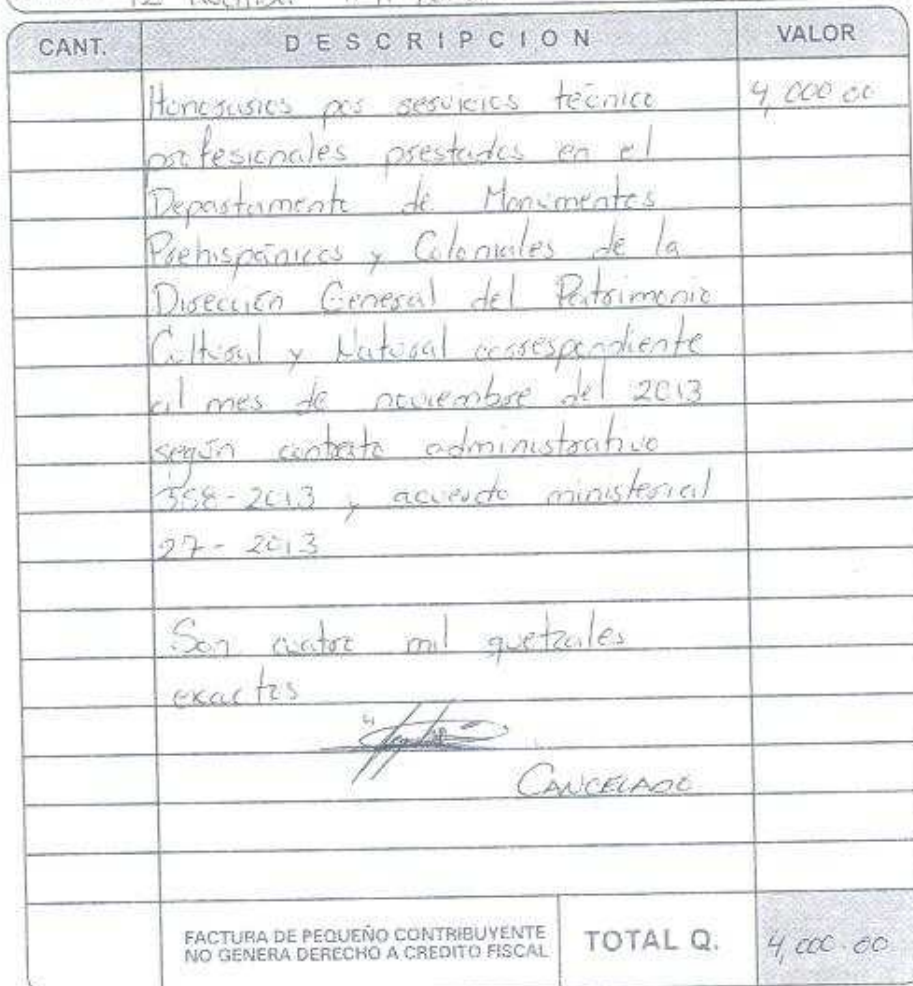 CANT. DESCRIPCION VALOR
Honorarios por servicios técnico 4,000.00
profesionales prestados en el
Departamento de Monumentos
Prehispánicos y Coloniales de la
Dirección General del Patrimonio
Cultural y Natural correspondiente
al mes de noviembre del 2013
según contrato administrativo
558-2013 y acuerdo ministerial
27-2013
Son cuatro mil quetzales
exactos
CANCELADO
FACTURA DE PEQUEÑO CONTRIBUYENTE
NO GENERA DERECHO A CREDITO FISCAL
TOTAL Q. 4,000.00